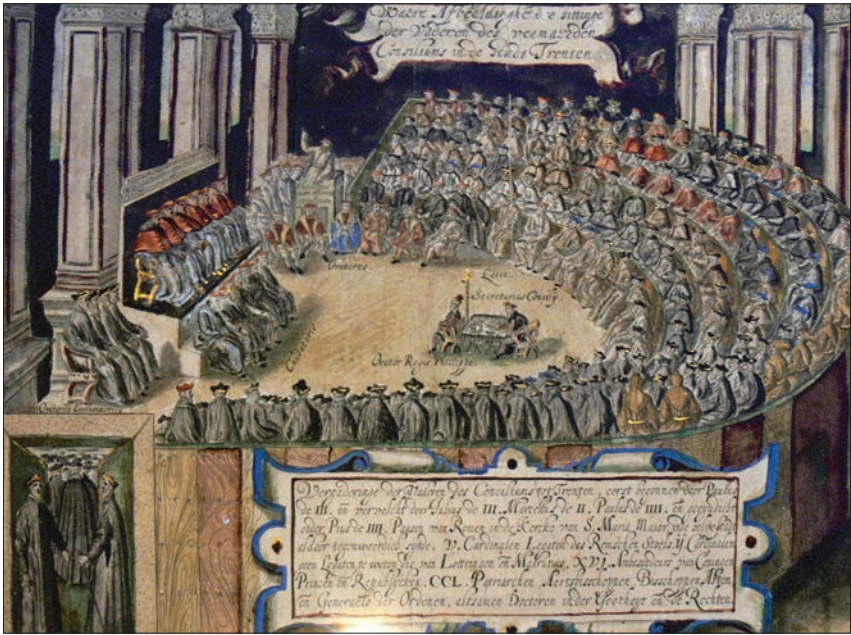 Waere Afbeeldinghe der sittinge
der Vaderen des vermaerden
Consiliums in de Stadt Trenten
Oratores.
Secretarius Concily
Orator Regis Philippi
Vergaderinge der Vaderen des Concilium tot Trenten, eerst begonnen door Paulus
de III. en vervolcht door Julius de III. Marcellus de II. Paulus de IIII. en geeyndicht
onder Pius de IIII. Pausen van Romen in de Kercke van S. Maria Maior
aldaer teghenwoordich synde. V. Cardinalen Legaten des Roomschen Stoels. II. Cardinalen
geen Legaten, te weten die van Lottringen en Madrutius. XVI. Ambassadeurs van Coningen
Princen en Republycken. CCL. Patriarchen, Aertsbisschoppen, Bisschoppen, Abten,
en Generaels der Ordenen, altsamen Doctoren inder Godtheyt en de Rechten.